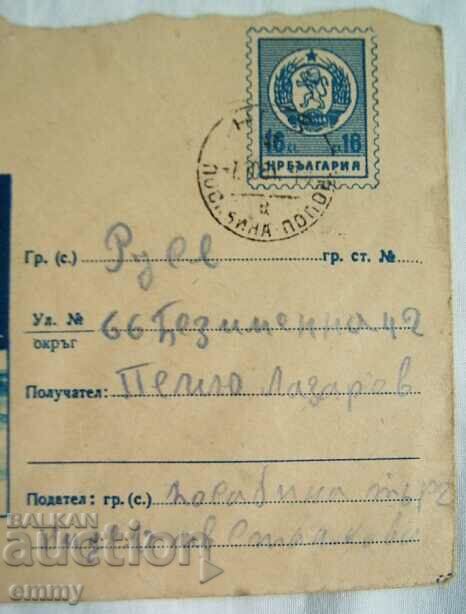 16 16
НР БЪЛГАРИЯ
ПОСАБИНА · ПОПОВСКО
Гр. (с.) Русе гр. ст. №
Ул. № 66 Безименна 42
окръг
Получател: Пенчо Лазаров
Подател: гр. (с.) Посабина търг
BALKAN
auction
emmy